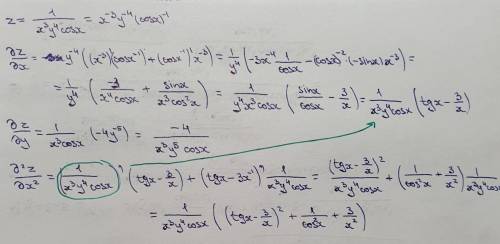 z = 1/(x³y⁴cosx) = x⁻³y⁻⁴(cosx)⁻¹
∂z/∂x = y⁻⁴((x⁻³)'(cosx⁻¹) + (cosx⁻¹)'x⁻³) = 1/y⁴ (-3x⁻⁴ 1/cosx - (cosx)⁻²·(-sinx)x⁻³) =
= 1/y⁴ · (-3/(x⁴cosx) + sinx/(x³cos²x)) = 1/(y⁴x³cosx) (sinx/cosx - 3/x) = 1/(x³y⁴cosx) (tgx - 3/x)
∂z/∂y = 1/(x³cosx) · (-4y⁻⁵) = -4/(x³y⁵cosx)
∂²z/∂x² = 1/(x³y⁴cosx)' · (tgx - 3/x) + (tgx - 3x⁻¹)' 1/(x³y⁴cosx) = (tgx - 3/x)²/(x³y⁴cosx) + (1/cos²x + 3/x²) 1/(x³y⁴cosx)
= 1/(x³y⁴cosx) ((tgx - 3/x)² + 1/cos²x + 3/x²)